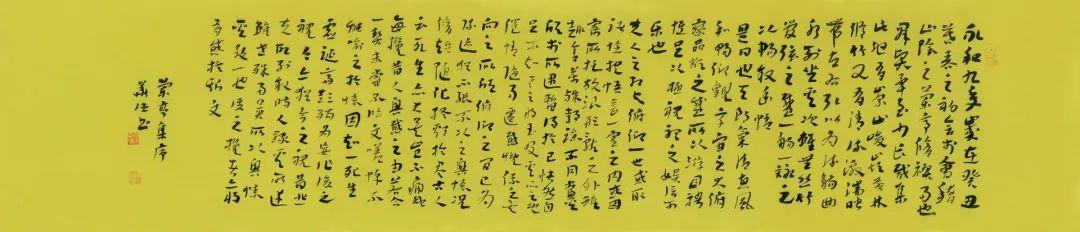 永和九年歲在癸丑
暮春之初會于會稽
山陰之蘭亭脩禊事也
群賢畢至少長咸集
此地有崇山峻嶺茂林
脩竹又有清流激湍映
帶左右引以為流觴曲
水列坐其次雖無絲竹
管弦之盛一觴一詠
以暢敘幽情
是日也天朗氣清惠風
和暢仰觀宇宙之大俯
察品類之盛所以遊目騁
懷足以極視聽之娛信可
樂也
夫人之相與俯仰一世或取
諸懷抱悟言一室之內或因
寄所託放浪形骸之外雖
趣舍萬殊靜躁不同當其
欣於所遇暫得於己快然自
足不知老之將至及其所之既
倦情隨事遷感慨係之矣
向之所欣俯仰之間已為
陳迹猶不能不以之興懷況
脩短隨化終期於盡古人
云死生亦大矣豈不痛哉
每攬昔人興感之由若合
一契未嘗不臨文嗟悼不
能喻之於懷固知一死生
虛誕齊彭殤為妄作後之
視今亦猶今之視昔悲
夫故列敘時人錄其所述
雖世殊事異所以興懷
其致一也後之攬者亦將
有感於斯文
蘭亭集序
書